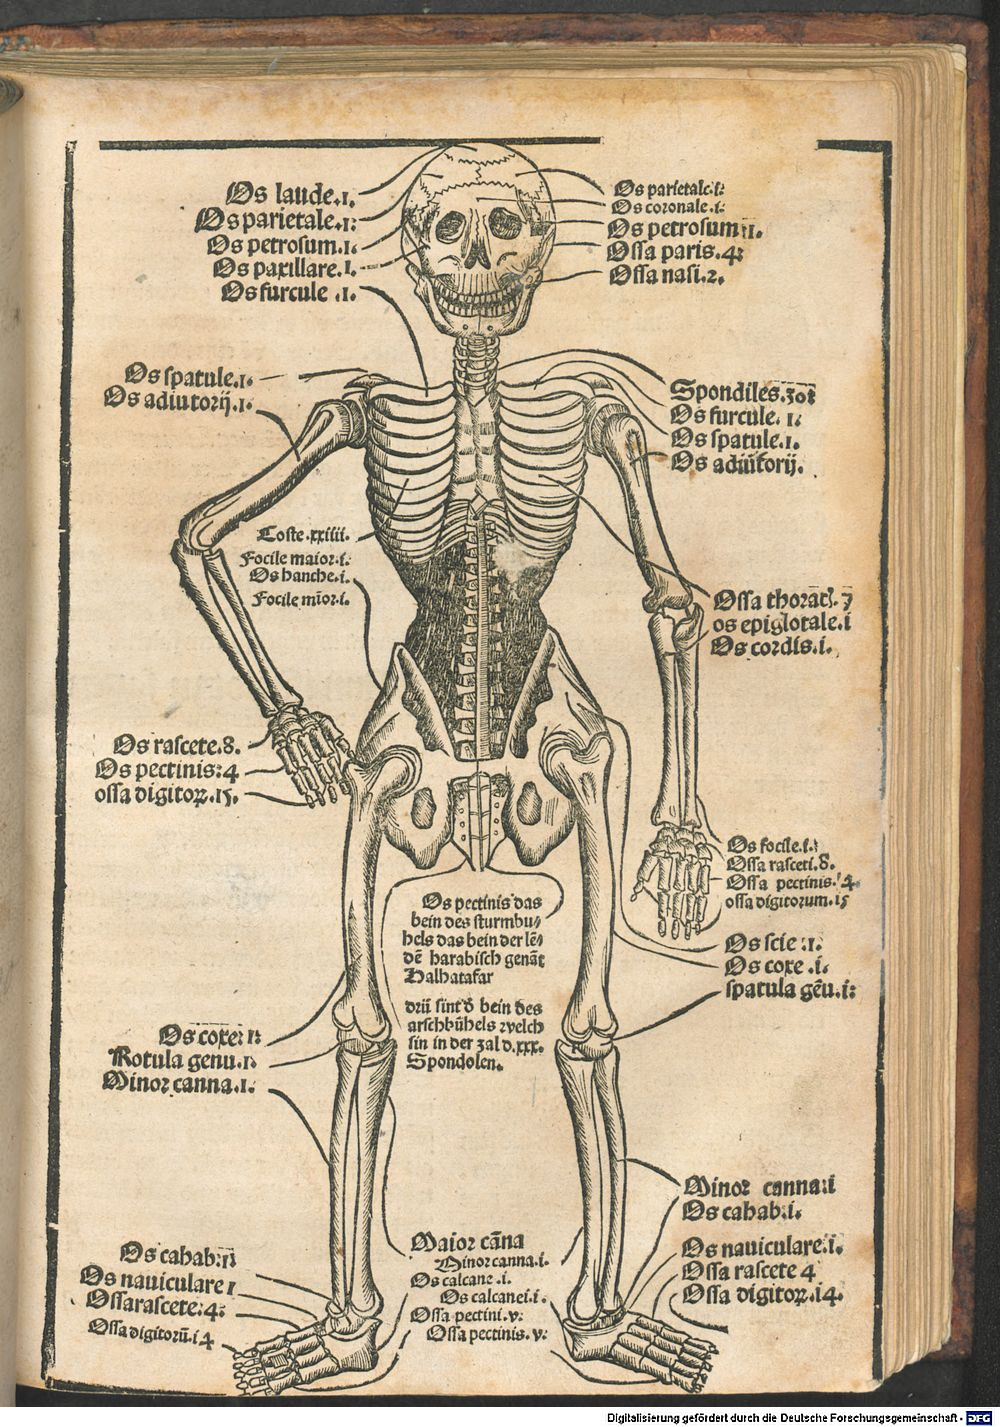 Os laude.1.
Os parietale.1:
Os petrosum.1.
Os paxillare.1.
Os furcule .1.
Os parietale.i:
Os coronale.i:
Os petrosum:1.
Ossa paris.4:
Ossa nasi.2.
Os spatule.1.
Os adiutorij.1.
Spondiles.30.
Os furcule.1:
Os spatule.1.
Os adiūtorij.
Coste.xxiiii.
Focile maior.i:
Os hanche.i.
Focile mīor.i.
Ossa thorac. 7
os epiglotale.i
Os cordis.i.
Os rascete.8.
Os pectinis:4
ossa digitoꝝ.15.
Os focile.i.
Ossa rasceti.8.
Ossa pectinis.4.
ossa digitorum.15
Os pectinis das
bein des sturmbu/
hels das bein der lē/
dē harabisch genāt
Halhatafar
drū sint d bein des
arschbühels welch
sin in der zal d.xxx.
Spondolen.
Os scie.1.
Os coxe.i.
spatula gēu.i:
Os coxe:1:
Rotula genu.1.
Minor canna.1.
Minor canna:i
Os cahab:i.
Os cahab:1:
Os nauiculare 1
Ossa rascete:4:
Ossa digitorū.i4
Maior cāna
Minor canna.i.
Os calcane.i.
Os calcanei.i.
Ossa pectini.v:
Ossa pectinis.v:
Os nauiculare.i.
Ossa rascete 4
Ossa digitoꝝ.i4.
Digitalisierung gefördert durch die Deutsche Forschungsgemeinschaft - DFG